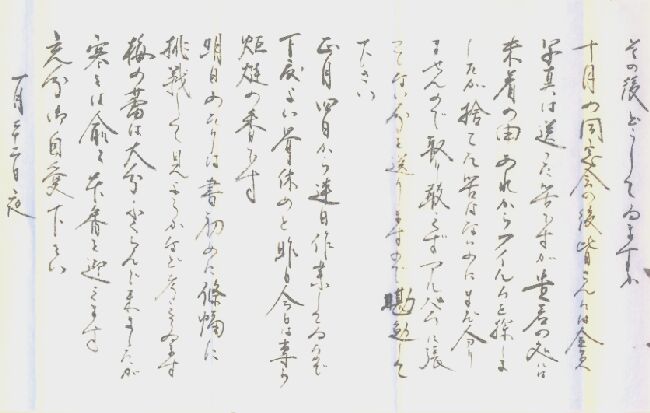 その後どうしてゐますか
十月の同窓会の後皆さんには全員
写真は送った筈ですが貴君の処は
未着の由 あれからフイルムを探しま
したが捨てた筈はないのにまだ分り
ませんので取り敢えずアルバムに張
ってない分を送りますので勘勉して
下さい
正月四日から連日作業してゐるので
丁度よい骨休めと昨日今日は専ら
炬燵の番です
明日あたりは書初めに條幅に
挑戦して見ようかなど考へてゐます
梅の蕾は大分ふくらんで来ましたが
寒さは愈々本番を迎へます
充分御自愛下さい
一月十二日夜